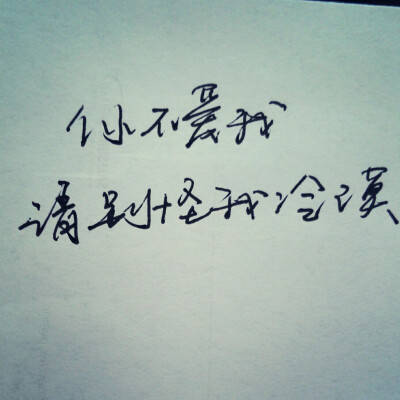 你不爱我
请别怪我冷漠